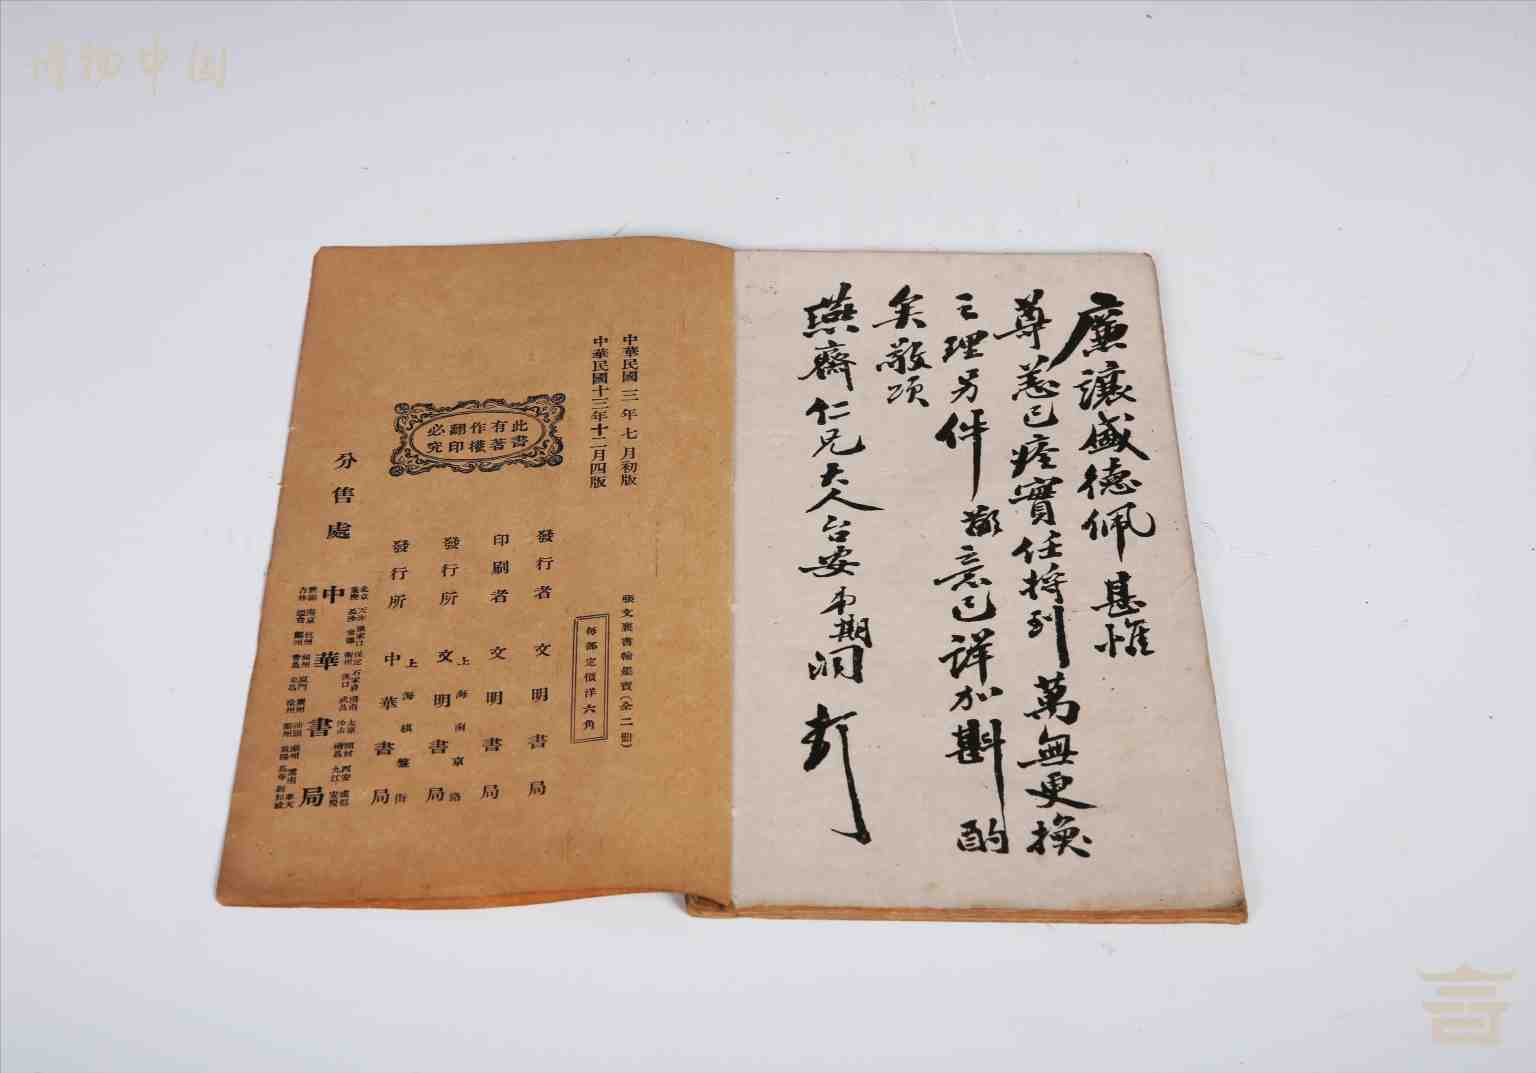 博物中国
廉讓盛德佩甚惟
尊恙已痊實任將到萬無更換
之理另件 意已詳加斟酌
矣敬頌
燕齋仁兄大人台安 期洞 
中華民國三年七月初版
中華民國十三年十二月四版
張文襄書翰墨寶(全二冊)
每部定價洋六角
此書有著作權翻印必究
發行者 文明書局
印刷者 文明書局
發行所 上海南京路 文明書局
發行所 上海棋盤街 中華書局
分售處 中華書局